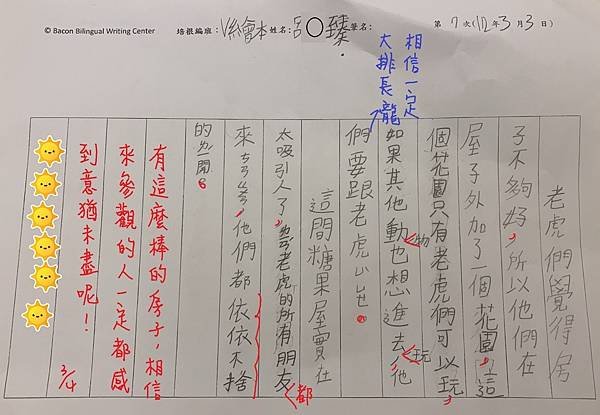 © Bacon Bilingual Writing Center
培根編班：V繪本 姓名：呂〇臻 筆名：
第 7 次(112年3月3日)
相信一定
大排長龍
老虎們覺得房
子不夠好，所以他們在
屋子外加了一個花園，這
個花園只有老虎們可以玩，
如果其他動也想進去，他
物
玩
們要跟老虎ㄙㄝ。
這間糖果屋實在
太吸引人了，老虎的所有朋友
都
來ㄘㄢ，他們都依依不捨
的ㄌㄧ開。
有這麼棒的房子，相信
來參觀的人一定都感
到意猶未盡呢！
3/4